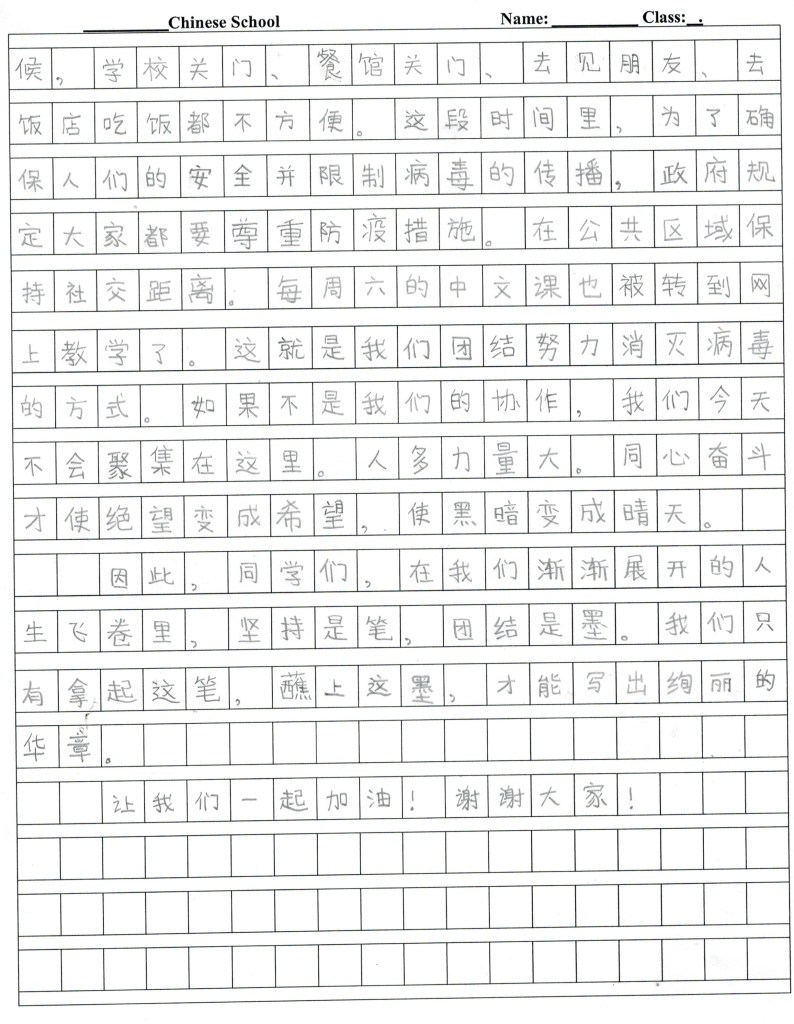 __________Chinese School Name: __________ Class:__.
候，学校关门、餐馆关门、去见朋友、去
饭店吃饭都不方便。这段时间里，为了确
保人们的安全并限制病毒的传播，政府规
定大家都要尊重防疫措施。在公共区域保
持社交距离。每周六的中文课也被转到网
上教学了。这就是我们团结努力消灭病毒
的方式。如果不是我们的协作，我们今天
不会聚集在这里。人多力量大。同心奋斗
才使绝望变成希望，使黑暗变成晴天。
因此，同学们，在我们渐渐展开的人
生飞卷里，坚持是笔，团结是墨。我们只
有拿起这笔，蘸上这墨，才能写出绚丽的
华章。
让我们一起加油！谢谢大家！